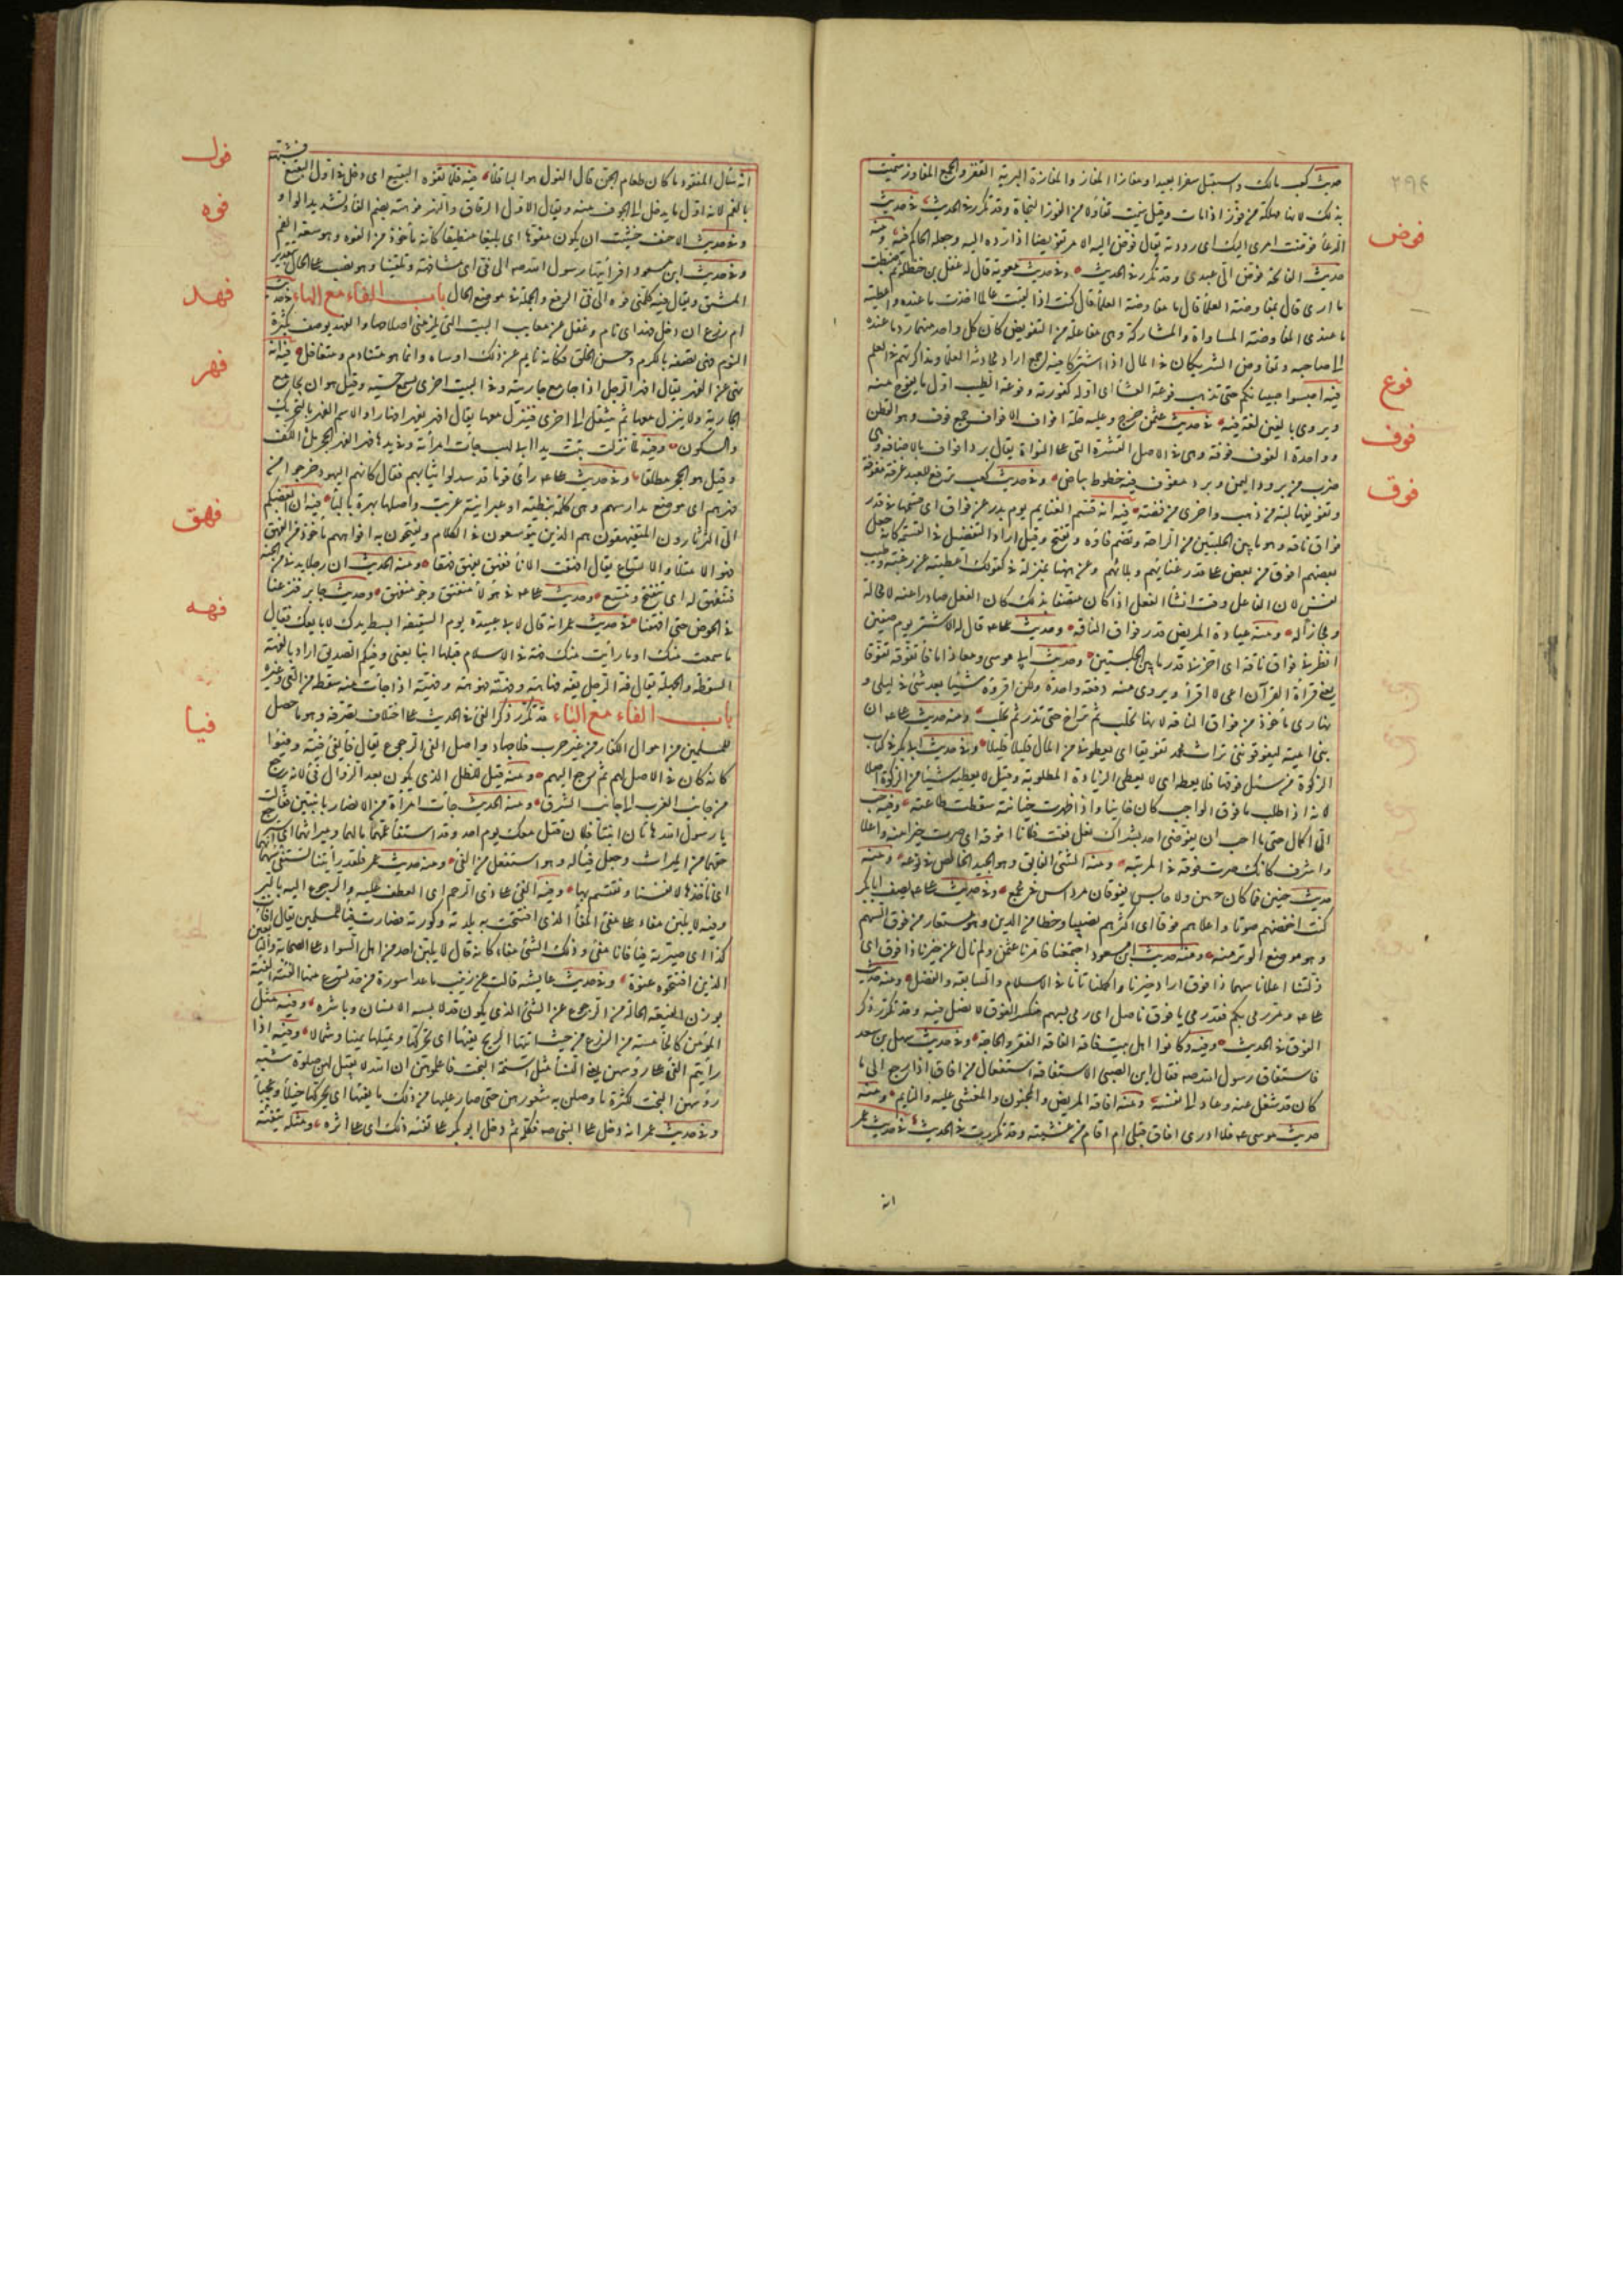 ٢٩٤
حديث كعب بن مالك واستقبل سفرا بعيدا ومفازا المفاز والمفازة البرية القفر والجمع المفاوز سميت
بذلك لانها مهلكة من فوّز اذا مات وقيل سميت تفاؤلا من الفوز النجاة وقد تكرر في الحديث في حديث
فوض
الدعاء فوضت امرى اليك اى رددته يقال فوّض اليه الامر تفويضا اذا رده اليه وجعله الحاكم فيه ومنه
حديث الفاتحة فوّض الىّ عبدى وقد تكرر في الحديث وفي حديث معوية قال لدغفل بن حنظلة بم ضبطت
ما ارى قال بمفاوضة العلماء قال ما مفاوضة العلماء قال كنت اذا لقيت عالما اخذت ما عنده واعطيته
ما عندى المفاوضة المساواة والمشاركة وهى مفاعلة من التفويض كان كل واحد منهما رد ما عنده
الى صاحبه وتفاوض الشريكان في المال اذا اشتركا فيه اجمع اراد محادثة العلماء ومذاكرتهم في العلم
فوع
فيه احبسوا صبيانكم حتى تذهب فوعة العشاء اى اوله كفورته وفوعة الطيب اول ما يفوح منه
فوف
ويروى بالغين لغة فيه في حديث عثمن خرج وعليه حلة افواف الافواف جمع فوف وهو القطن
وواحدة الفوف فوفة وهى في الاصل القشرة التى على النواة يقال برد افواف بالاضافة وهى
ضرب من برود اليمن وبرد مفوف فيه خطوط بياض وفي حديث كعب ترفع للعبد غرفة مفوفة
فوق
وتفويفها لبنة من ذهب واخرى من فضة فيه انه قسم الغنايم يوم بدر عن فواق اى قسمها في قدر
فواق ناقة وهو ما بين الحلبتين من الراحة وتضم فاؤه وتفتح وقيل اراد التفضيل في القسمة كانه جعل
بعضهم افوق من بعض على قدر غنايهم وبلائهم وعن ههنا بمنزلتها في قولك اعطيته عن رغبة وطيب
نفس لان الفاعل وقت انشاء الفعل اذا كان متصفا بذلك كان الفعل صادرا عنه لا محالة
ومجازا له ومنه عيادة المريض قدر فواق الناقة وحديث على قال له الاشتر يوم صفين
انظرنى فواق ناقة اى اخرنى قدر ما بين الحلبتين وحديث ابى موسى ومعاذ اما انا فاتفوقه تفوقا
يعنى قراءة القرآن اى لا اقرأ وردى منه دفعة واحدة ولكن اقرؤه شيئا بعد شئ في ليلى و
نهارى مأخوذ من فواق الناقة لانها تحلب ثم تراح حتى تدر ثم تحلب ومنه حديث على ان
بنى امية ليفوقوننى تراث محمد تفويقا اى يعطوننى من المال قليلا قليلا وفي حديث ابى بكر في كتاب
الزكوة من سئل فوقها فلا يعطه اى لا يعطى الزيادة المطلوبة وقيل لا يعطيه شيئا من الزكوة اصلا
لانه اذا طلب ما فوق الواجب كان خاينا واذا ظهرت خيانته سقطت طاعته وفيه حبب
الىّ الجمال حتى ما احب ان يفوقنى احد بشراك نعل فقت فلانا افوقه اى صرت خيرا منه واعلا
واشرف كانك صرت فوقه في المرتبة ومنه الشئ الفايق وهو الجيد الخالص في نوعه ومنه
حديث حنين فما كان حصن ولا حابس يفوقان مرداس في مجمع وفي حديث على يصف ابا بكر
كنت اخفضهم صوتا واعلاهم فوقا اى اكثرهم نصيبا وحظا من الدين وهو مستعار من فوق السهم
وهو موضع الوتر منه ومنه حديث ابن مسعود اجتمعنا فامرنا عثمن ولم نال عن خيرنا ذا فوق اى
ولّينا اعلانا سهما ذا فوق اراد خيرنا واكملنا تاما في الاسلام والسابقة والفضل ومنه حديث
على ومن رمى بكم فقد رمى بافوق ناصل اى رمى بسهم منكسر الفوق لا نصل فيه وقد تكرر ذكر
الفوق في الحديث وفيه وكانوا اهل بيت فاقة الفاقة الفقر والحاجة وفي حديث سهل بن سعد
فاستفاق رسول الله صه فقال اين الصبى الاستفاقة استفعال من افاق اذا رجع الى ما
كان قد شغل عنه وعاد الى نفسه ومنه افاقة المريض والمجنون والمغشى عليه والنايم ومنه
حديث موسى عه فلا ادرى افاق قبلى ام اقام من غشيته وقد تكررت في الحديث في حديث عمر
انه
فول
انه سأل المفقود ما كان طعام الجن قال الفول هو الباقلاء فيه فلما تفوّه البقيع اى دخل في اول البقيع
فوه
بالضم لانه اول ما يدخل الى الجوف منه ويقال لاول الزقاق والنهر فوهته بضم الفاء وتشديد الواو
وفي حديث الاحنف خشيت ان يكون مفوّها اى بليغا منطيقا كأنه مأخوذ من الفوه وهو سعة الفم
وفي حديث ابن مسعود اقرأنيها رسول الله صه الى فىّ اى مشافهة وتلقينا وهو نصب على الحال بتقدير
فهد
المشتق ويقال فيه كلمنى فوه الى فىّ بالرفع والجملة في موضع الحال باب الفاء مع الهاء في حديث
ام زرع ان دخل فهد اى نام وغفل عن معايب البيت التى يلزمنى اصلاحها والفهد يوصف بكثرة
فهر
النوم فهى تصفه بالكرم وحسن الخلق فكأنه نايم عن ذلك اوساه وانما هو متناوم ومتغافل فيه انه
نهى عن الفهر يقال افهر الرجل اذا جامع جاريته وفي البيت اخرى تسمع حسه وقيل هو ان يجامع
الجارية ولا ينزل معها ثم ينتقل الى اخرى فينزل معها يقال افهر يفهر افهارا والاسم الفهر بالتحريك
والسكون وفيه لما نزلت تبت يدا ابى لهب جاءت امرأته وفي يدها فهر الفهر الحجر ملء الكف
وقيل هو الحجر مطلقا وفي حديث على رأى قوما قد سدلوا ثيابهم فقال كانهم اليهود خرجوا من
فهق
فهرهم اى موضع مدارسهم وهى كلمة نبطية او عبرانية عربت واصلها بهرة بالباء فيه ان ابغضكم
الىّ الثرثارون المتفيهقون هم الذين يتوسعون في الكلام ويفتحون به افواههم مأخوذ من الفهق
فهو الامتلاء والاتساع يقال افهقت الاناء ففهق يفهق فهقا ومنه الحديث ان رجلا يدنى من الجنة
فتنفهق له اى تنفتح وتتسع وحديث على في هواء منفتق وجو منفهق وحديث جابر فنزعنا
فهه
في الحوض حتى افهقنا في حديث عمر انه قال لابى عبيدة يوم السقيفة ابسط يدك لابايعك فقال
ما سمعت منك او ما رأيت منك فهة في الاسلام قبلها اتبايعنى وفيكم الصديق اراد بالفهة
السقطة والجهلة يقال فه الرجل يفه فهاهة وفهة فهو فه وفهيه اذا جاءت منه سقطة من العى وغيره
فيا
باب الفاء مع الياء قد تكرر ذكر الفئ في الحديث على اختلاف تصرفه وهو ما حصل
للمسلمين من اموال الكفار من غير حرب ولا جهاد واصل الفئ الرجوع يقال فاء يفئ فيئة وفيوا
كانه كان في الاصل لهم ثم رجع اليهم ومنه قيل للظل الذى يكون بعد الزوال فئ لانه يرجع
من جانب الغرب الى جانب الشرق ومنه الحديث جاءت امرأة من الانصار بابنتين فقالت
يا رسول الله هاتان ابنتا فلان قتل معك يوم احد وقد استفاء عمهما مالهما وميراثهما اى استرجع
حقهما من الميراث وجعل فيئا له وهو استفعل من الفئ ومنه حديث عمر فلقد رأيتنا نستفئ سهمانهما
اى نأخذها لانفسنا ونقتسم بها وفيه الفئ على ذى الرحم اى العطف عليه والرجوع اليه بالبر
وفيه لا يلين مفاء على مفئ المفاء الذى افتتحت به بلدته وكورته فصارت فيئا للمسلمين يقال افأت
كذا اى صيرته فيئا فانا مفئ وذلك الشئ مفاء كانه قال لا يلين احد من اهل السواد على الصحابة والتابعين
الذين افتتحوه عنوة وفي حديث عايشة قالت عن زينب ما عدا سورة من حد تسرع منها الفيئة الفيئة
بوزن الفيعة الحالة من الرجوع عن الشئ الذى يكون قد لابسه الانسان وباشره وفيه مثل
المؤمن كالخامة من الزرع من حيث اتتها الريح يفيئها اى تحركها وتميلها يمينا وشمالا وفيه اذا
رأيتم الفئ على رؤسهن يعنى النساء مثل اسنمة البخت فاعلموهن ان الله لا يقبل لهن صلوة شبه
رؤسهن باسنمة البخت لكثرة ما وصلن به شعورهن حتى صار عليها من ذلك ما يفيئها اى يحركها خيلاء وعجبا
وفي حديث عمر انه دخل على النبى صه فكلمه ثم دخل ابو بكر على تفيئة ذلك اى على اثره ومثله تئفة